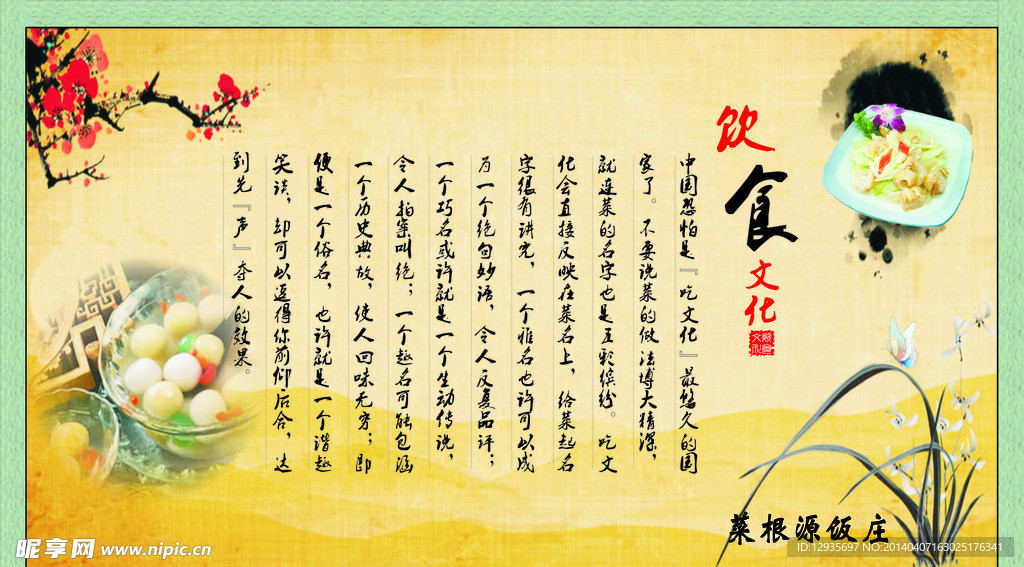 饮食文化
中国恐怕是『吃文化』最悠久的国
家了。不要说菜的做法博大精深，
就连菜的名字也是五彩缤纷。吃文
化会直接反映在菜名上，给菜起名
字很有讲究，一个雅名也许可以成
为一个绝句妙语，令人反复品评；
一个巧名或许就是一个生动传说，
令人拍案叫绝；一个趣名可能包涵
一个历史典故，使人回味无穷；即
便是一个俗名，也许就是一个谐趣
笑谈，却可以逗得你前仰后合，达
到先『声』夺人的效果。
菜根源饭庄
昵享网 www.nipic.cn
ID:12935697 NO:20140407163025176341